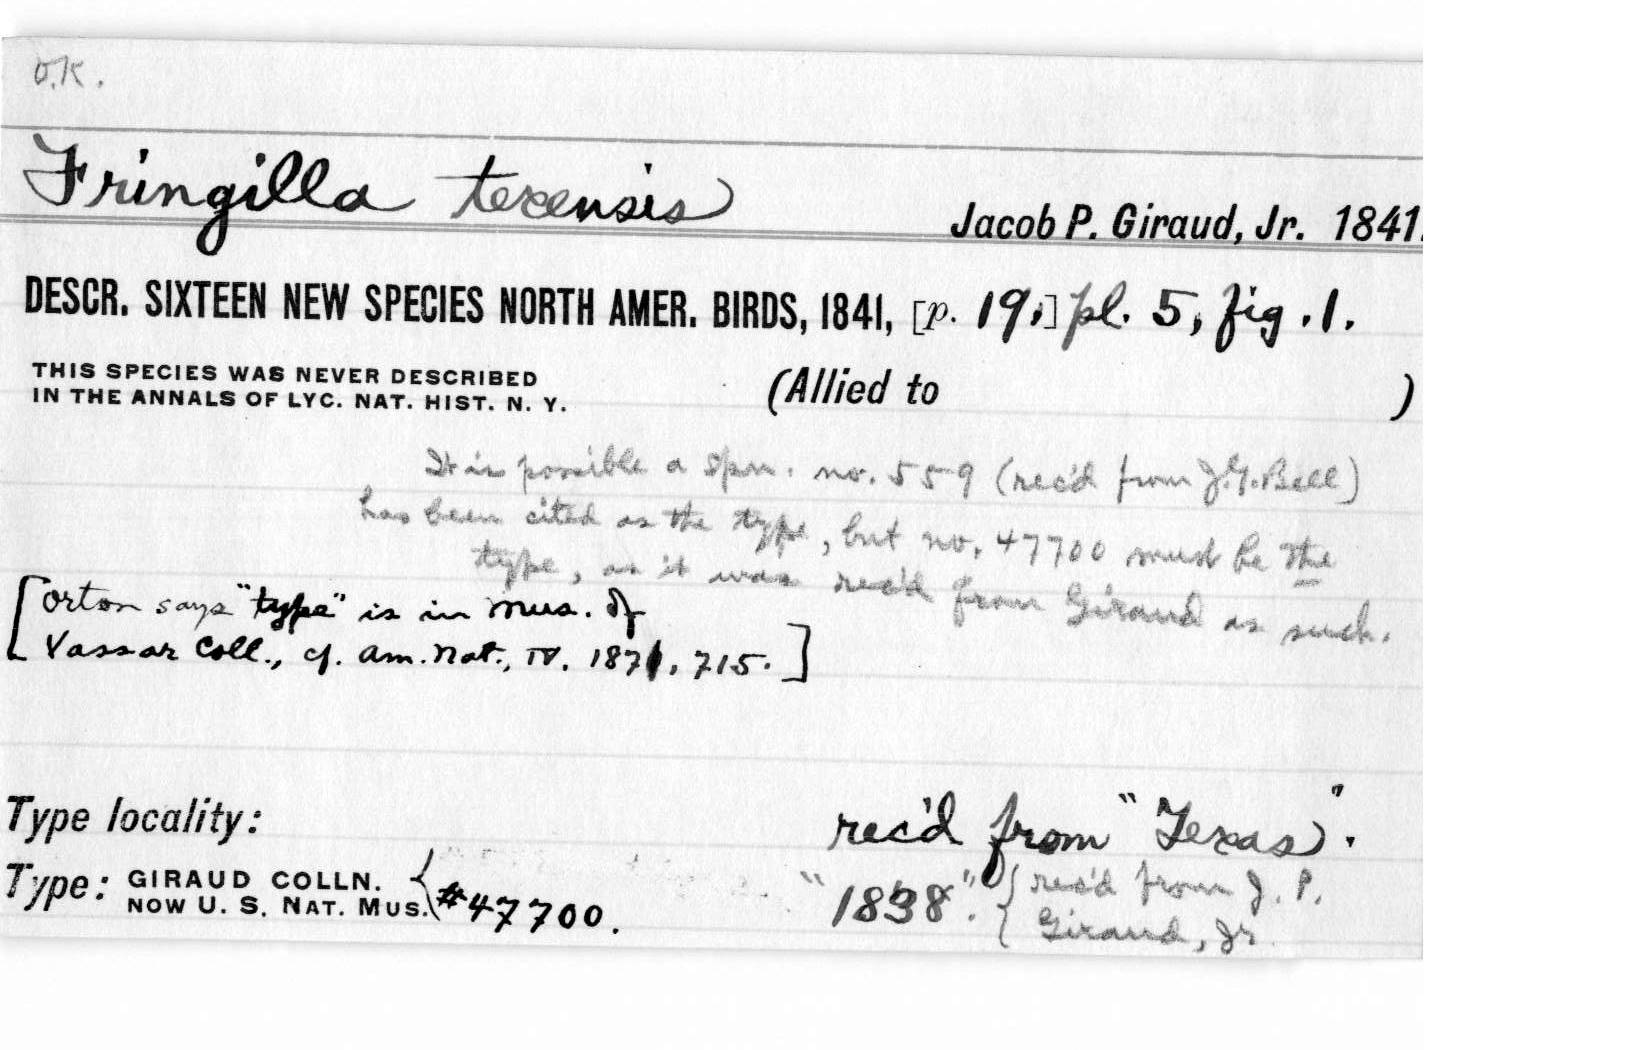 O.K.
Fringilla texensis
Jacob P. Giraud, Jr. 1841.
DESCR. SIXTEEN NEW SPECIES NORTH AMER. BIRDS, 1841, [p. 19.] pl. 5, fig. 1.
THIS SPECIES WAS NEVER DESCRIBED
IN THE ANNALS OF LYC. NAT. HIST. N. Y.
(Allied to )
It is possible a spm. no. 559 (rec'd from J.G. Bell)
has been cited as the type, but no. 47700 must be the
type, as it was rec'd from Giraud as such.
[Orton says "type" is in Mus. of
Vassar Coll., cf. Am. Nat., IV. 1871, 715.]
Type locality: rec'd from "Texas".
Type: GIRAUD COLLN.
NOW U. S. NAT. MUS. { #47700. "1838". { rec'd from J. P.
Giraud, Jr